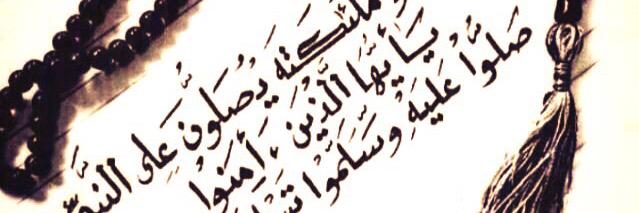 وَمَلَٰٓئِكَتَهُ يُصَلُّونَ عَلَى النَّبِيِّ
يَٰٓأَيُّهَا الَّذِينَ ءَامَنُوا
صَلُّوا عَلَيْهِ وَسَلِّمُوا